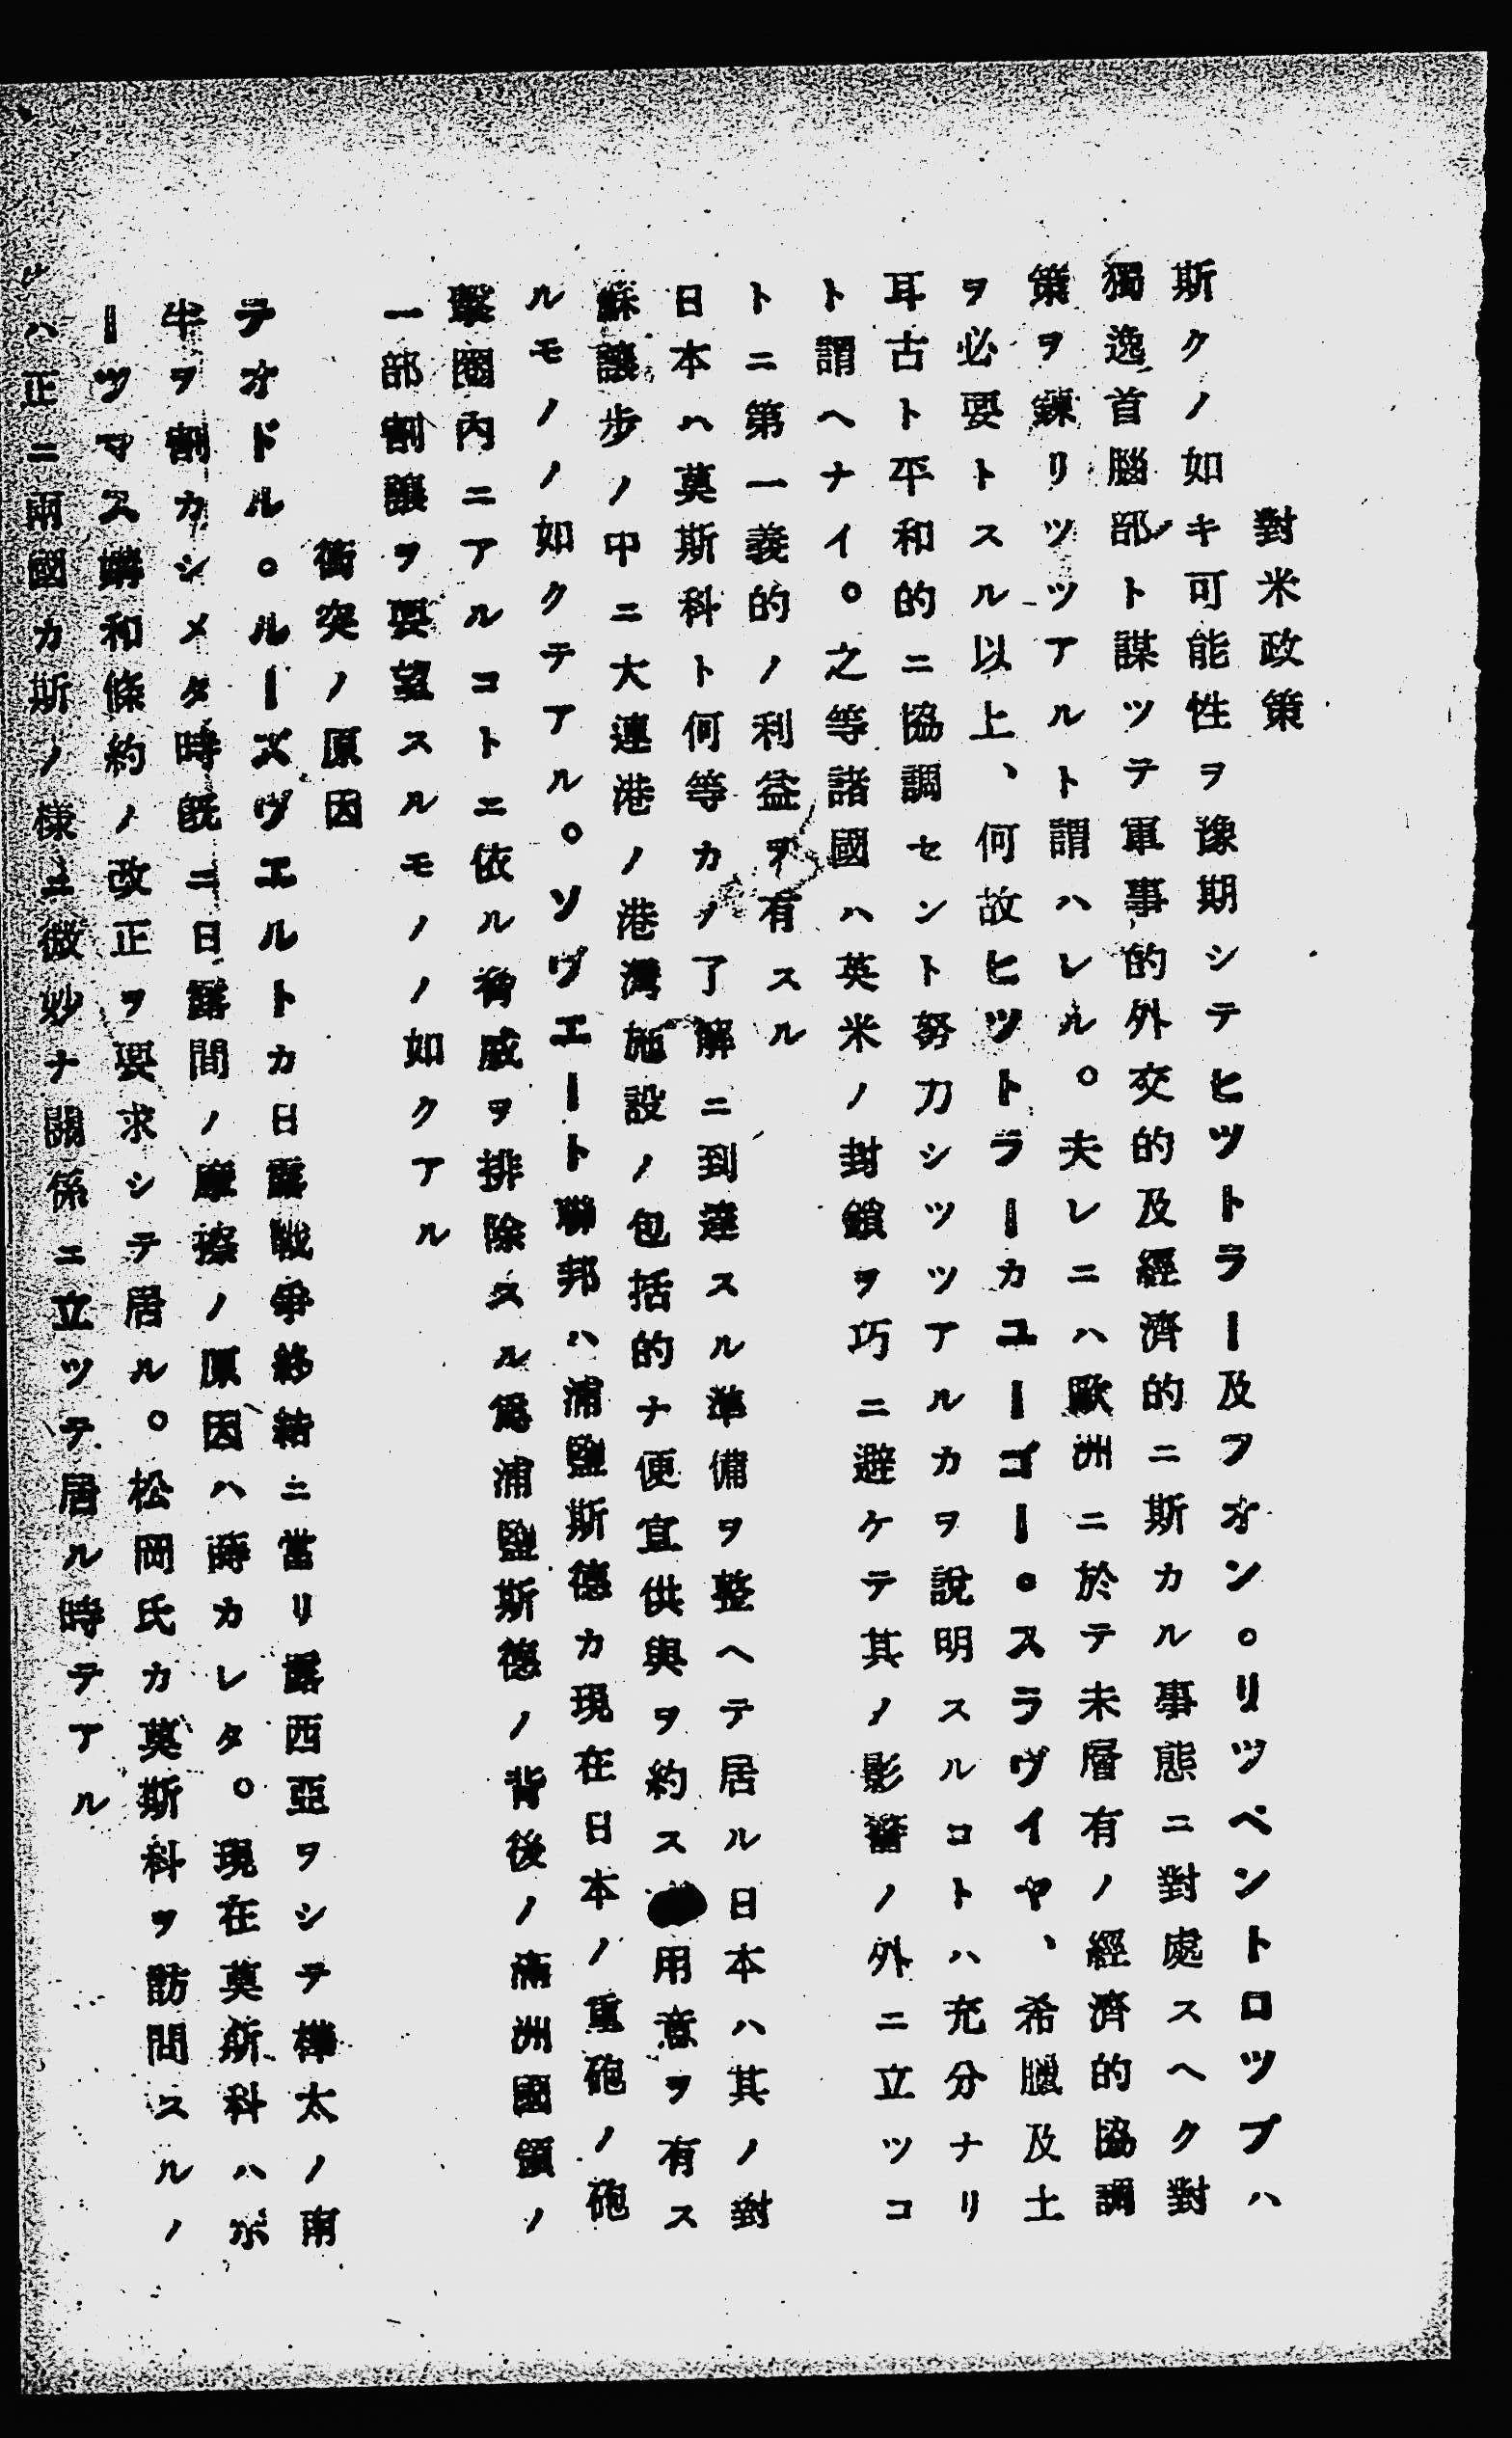 對米政策
斯クノ如キ可能性ヲ豫期シテヒツトラー及フオン。リツベントロツプハ
獨逸首腦部ト謀ツテ軍事的外交的及經濟的ニ斯カル事態ニ對處スヘク對
策ヲ練リツツアルト謂ハレル。夫レニハ歐洲ニ於テ未層有ノ經濟的協調
ヲ必要トスル以上、何故ヒツトラーカユーゴー。スラヴイヤ、希臘及土
耳古ト平和的ニ協調セント努力シツツアルカヲ說明スルコトハ充分ナリ
ト謂ヘナイ。之等諸國ハ英米ノ封鎖ヲ巧ニ避ケテ其ノ影響ノ外ニ立ツコ
トニ第一義的ノ利益ヲ有スル
日本ハ莫斯科ト何等カノ了解ニ到達スル準備ヲ整ヘテ居ル日本ハ其ノ對
蘇讓步ノ中ニ大連港ノ港灣施設ノ包括的ナ便宜供與ヲ約ス用意ヲ有ス
ルモノノ如クテアル。ソヴエート聯邦ハ浦鹽斯德カ現在日本ノ重砲ノ砲
擊圈內ニアルコトニ依ル脅威ヲ排除スル爲浦鹽斯德ノ背後ノ滿洲國領ノ
一部割讓ヲ要望スルモノノ如クアル
衝突ノ原因
テオドル。ルーズヴエルトカ日露戰爭終結ニ當リ露西亞ヲシテ樺太ノ南
半ヲ割カシメタ時旣ニ日露間ノ摩擦ノ原因ハ蒔カレタ。現在莫斯科ハポ
ーツマス媾和條約ノ改正ヲ要求シテ居ル。松岡氏カ莫斯科ヲ訪問スルノ
ハ正ニ兩國カ斯ノ樣ニ微妙ナ關係ニ立ツテ居ル時テアル